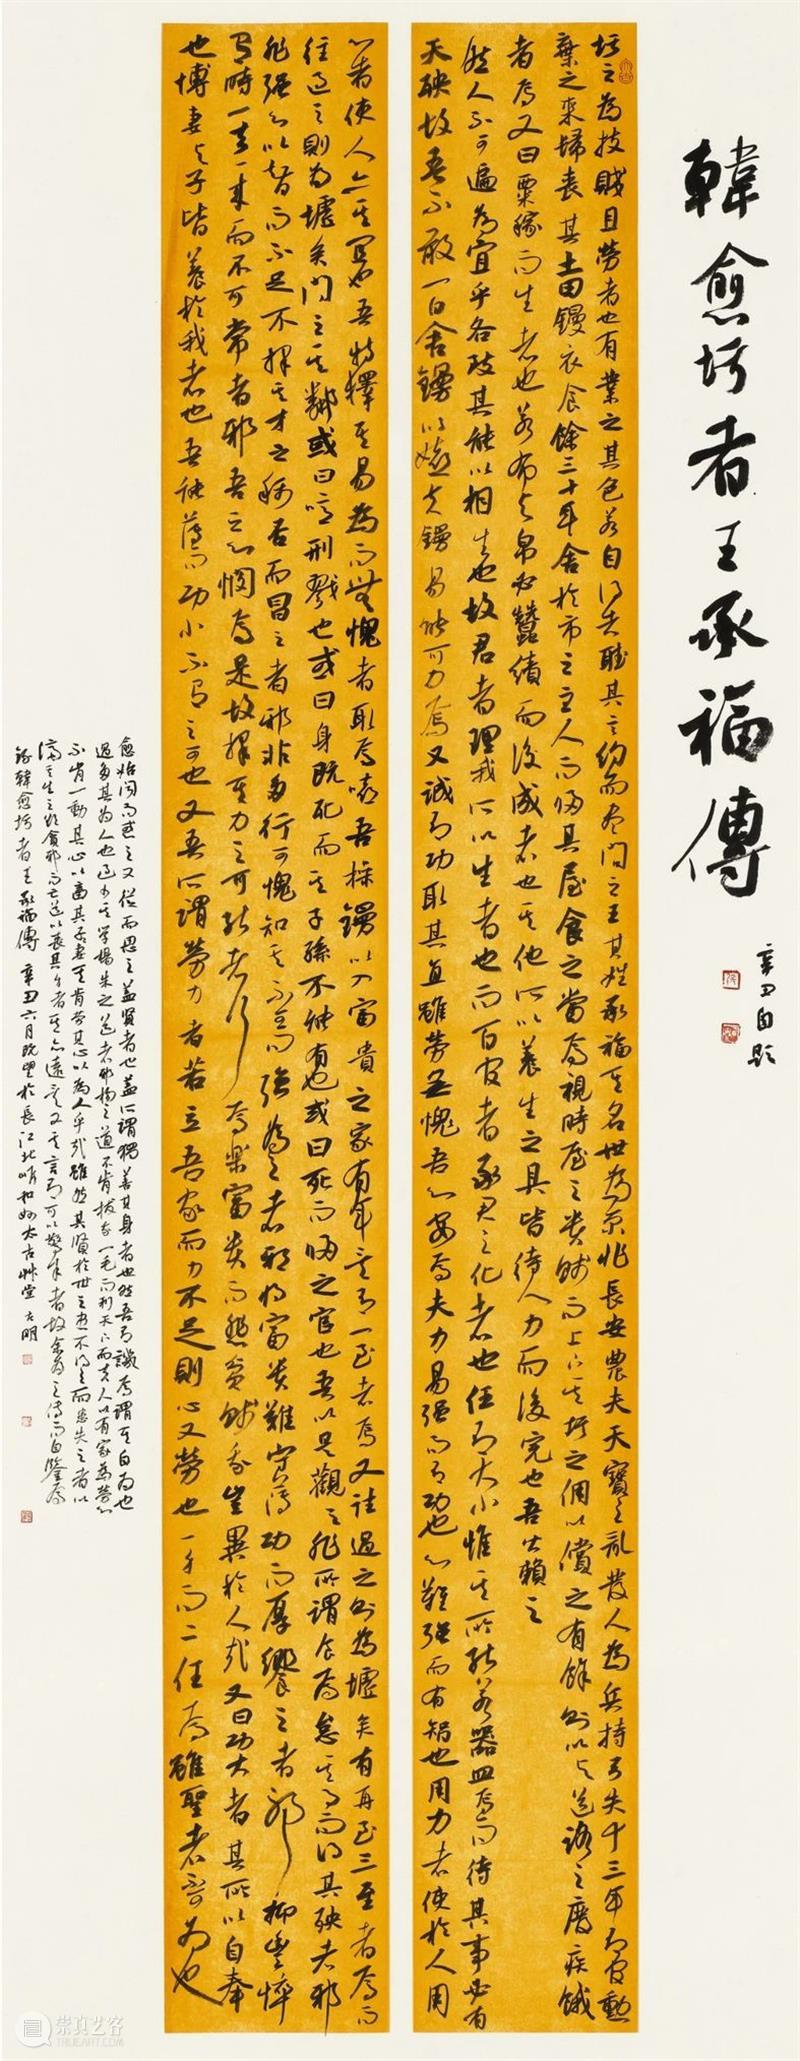 韓愈圬者王承福傳
辛丑自題
圬之為技賤且勞者也有業之其色若自得者聽其言約而盡問之王其姓承福其名世為京兆長安農夫天寶之亂發人為兵持弓矢十三年有官勳
棄之來歸喪其土田鏝衣食餘三十年舍於市之主人而歸其屋食之當焉視時屋之貴賤而上下其圬之傭以償之有餘則以與道路之廢疾餓
者焉又曰粟稼而生者也若布與帛必蠶績而後成者也其他所以養生之具皆待人力而後完也吾皆賴之
然人不可遍為宜乎各致其能以相生也故君者理我所以生者也而百官者承君之化者也任有大小惟其所能若器皿焉而待其事必有
天殃故吾不敢一日舍鏝以嬉夫鏝易能可力焉又誠有功取其直雖勞無愧吾心安焉夫力易強而有功也心難強而有智也用力者使於人用
心者使人亦其宜也吾特擇其易為而無愧者取焉嘻吾操鏝以入富貴之家有年矣有一至者焉又往過之則為墟矣有再至三至者焉而
往過之則為墟矣問之其鄰或曰噫刑戮也或曰身既死而其子孫不能有也或曰死而歸之官也吾以是觀之非所謂食焉怠其事而得其殃者邪
非強心以智而不足不擇其才之稱否而冒之者邪非多行可愧知其不可而強為之者邪將富貴難守薄功而厚饗之者邪抑豐悴
有時一去一來而不可常者邪吾之心憫焉是故擇其力之可能者行焉樂富貴而悲貧賤我豈異於人哉又曰功大者其所以自奉
也博妻與子皆養於我者也吾能薄而功小不有之可也又吾所謂勞力者若立吾家而力不足則心又勞也一身而二任焉雖聖者不可為也
愈始聞而惑之又從而思之蓋賢者也蓋所謂獨善其身者也然吾有譏焉謂其自為也
過多其為人也過少其學楊朱之道者邪楊之道不肯拔我一毛而利天下而夫人以有家為勞心
不肯一動其心以畜其妻子其肯勞其心以為人乎哉雖然其賢於世之患不得之而患失之者以
濟其生之欲貪邪而亡道以喪其身者其亦遠矣又其言有可以警余者故余為之傳而自鑒焉
錄韓愈圬者王承福傳 辛丑六月既望於長江北岸和州太古草堂 古明
崇真艺客
WWW.TRUEART.COM